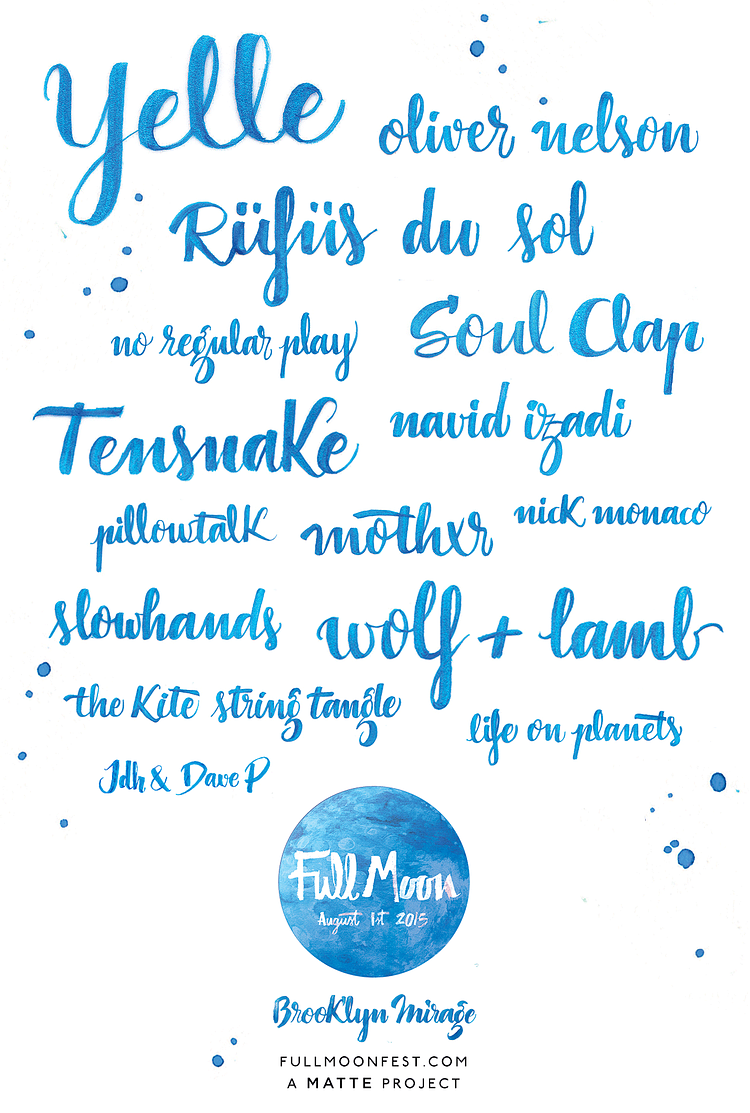 Yelle
oliver nelson
Rüfüs du sol
no regular play
Soul Clap
Tensnake
navid izadi
pillowtalk
mothxr
nick monaco
slowhands
wolf + lamb
the Kite string tangle
life on planets
Jdh & Dave P
Full Moon
August 1st 2015
Brooklyn Mirage
FULLMOONFEST.COM
A MATTE PROJECT